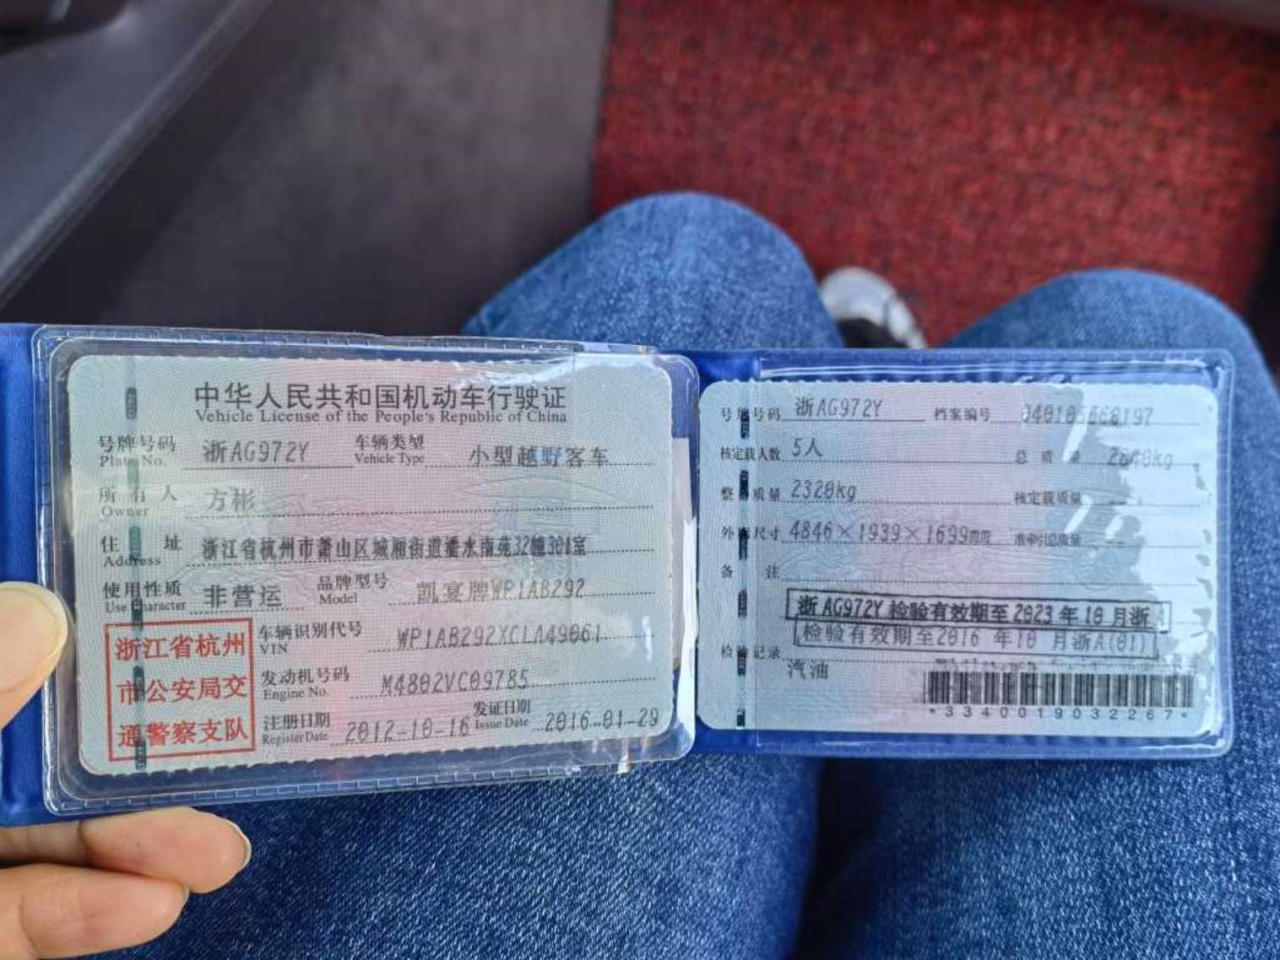 中华人民共和国机动车行驶证
Vehicle License of the People's Republic of China
号牌号码 浙AG972Y 车辆类型 小型越野客车
Plate No. Vehicle Type
所有人 方彬
Owner
住址 浙江省杭州市萧山区城厢街道潘水南苑32幢301室
Address
使用性质 非营运 品牌型号 凯宴牌WP1AB292
Use Character Model
浙江省杭州
市公安局交
通警察支队
车辆识别代号 WP1AB292XCLA49061
VIN
发动机号码 M4802VC09785
Engine No.
注册日期 2012-10-16 发证日期 2016-01-29
Register Date Issue Date
号牌号码 浙AG972Y 档案编号
核定载人数 5人 总质量
整备质量 2320kg 核定载质量
外廓尺寸 4846×1939×1699mm 准牵引总质量
备注
浙AG972Y 检验有效期至2023年10月浙A
检验有效期至2016年10月浙A(01)
检验记录
汽油
*3340019032267*